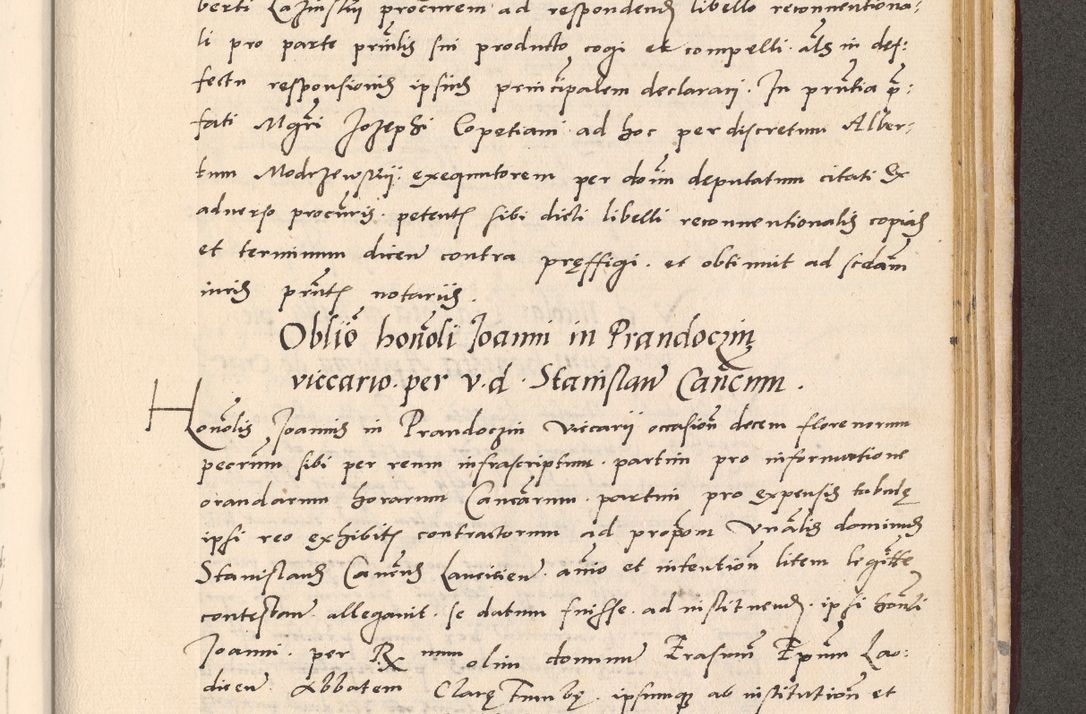 berti Lazinskij procurem ad respondendũ libello reconventiona:
li pro parte prin̄lis sui producto cogi et compelli. als in def:
fectu responsionis ipsius principalem declarari. In prn̄tia p̄:
fati Mgr̄i Jozephi Copetiani ad hoc per discretum Alber:
tum Modrzewskij. exequutorem per dom̄ deputatum citati Ex
adverso procur̄is. petentis sibi dicti libelli reconventionalis copiam
et terminum dicen̄ contra pręffigi. et obtinuit ad sc̄dam
iuris prn̄tis notarijs.
Obl̄io hon̄oli Joanni in Prandoczin
viccario. per v. d. Stanislaū Can̄cum.
Hon̄olis Joannis in Prandoczin viccarij occasion̄ decem florenorum
pecc̄rum sibi per reum infrascriptum. partim pro informatione
orandarum horarum Can̄carum. partim pro expensis tabulę
ipsi reo exhibitis contractorum ad propōn Vn̄alis dominus
Stanislaus Can̄cus Lancicien̄. an̄io et intention̄ litem legitt̄e
contestan̄ allegavit. se datum fuisse. ad instituendũ. ipsi hon̄oli
Joanni. per Rx num olim domum̄ Erasmū Epūm Lao:
dicen̄ Abbatem Claretumbę. ipsumque ab institution̄ et